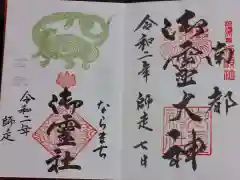 南都
御霊大神
令和二年
師走七日
ならまち
御霊社
令和二年
師走